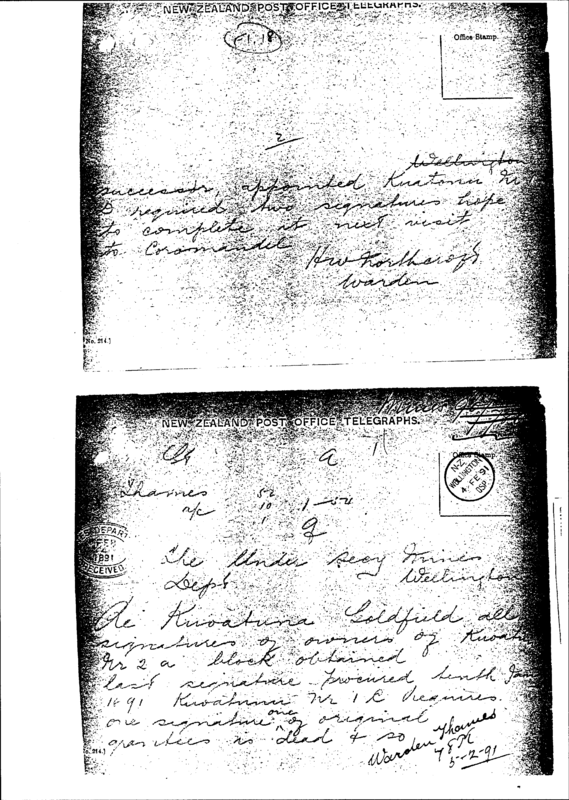 NEW ZEALAND POST OFFICE TELEGRAPHS.
Office Stamp.
2
Wellington
successor, appointed Kuatonu Nr 1
B required two signatures hope
to complete it next visit
to Coromandel
HW Northcroft
Warden
No. 214.]
NEW ZEALAND POST OFFICE TELEGRAPHS.
a
Office Stamp
N.Z.
WELLINGTON
4 FE 91
Thames
52
10
1
DEPART
FEB
1891
RECEIVED
The Under Secy Mines
Dept Wellington
Re Kuoatuna Goldfield all
signatures of owners of Kuoatu
Nr 2 a block obtained
last signature procured tenth Jan
1891 Kuoatunu Nr 1 C requires
one signature one of original
grantees is dead & so
Warden Thames
5-2-91
214.]